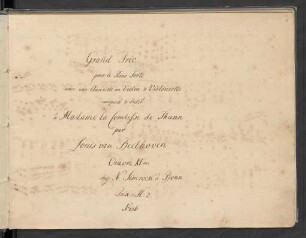 Grand Trio
pour le Piano Forte
avec une Clarinette ou Violon & Violoncelle
composé & dedié
à Madame la Comtesse de Thunn
par
Louis van Beethoven
Oeuvre XI
chez N. Simrock à Bonn
Prix